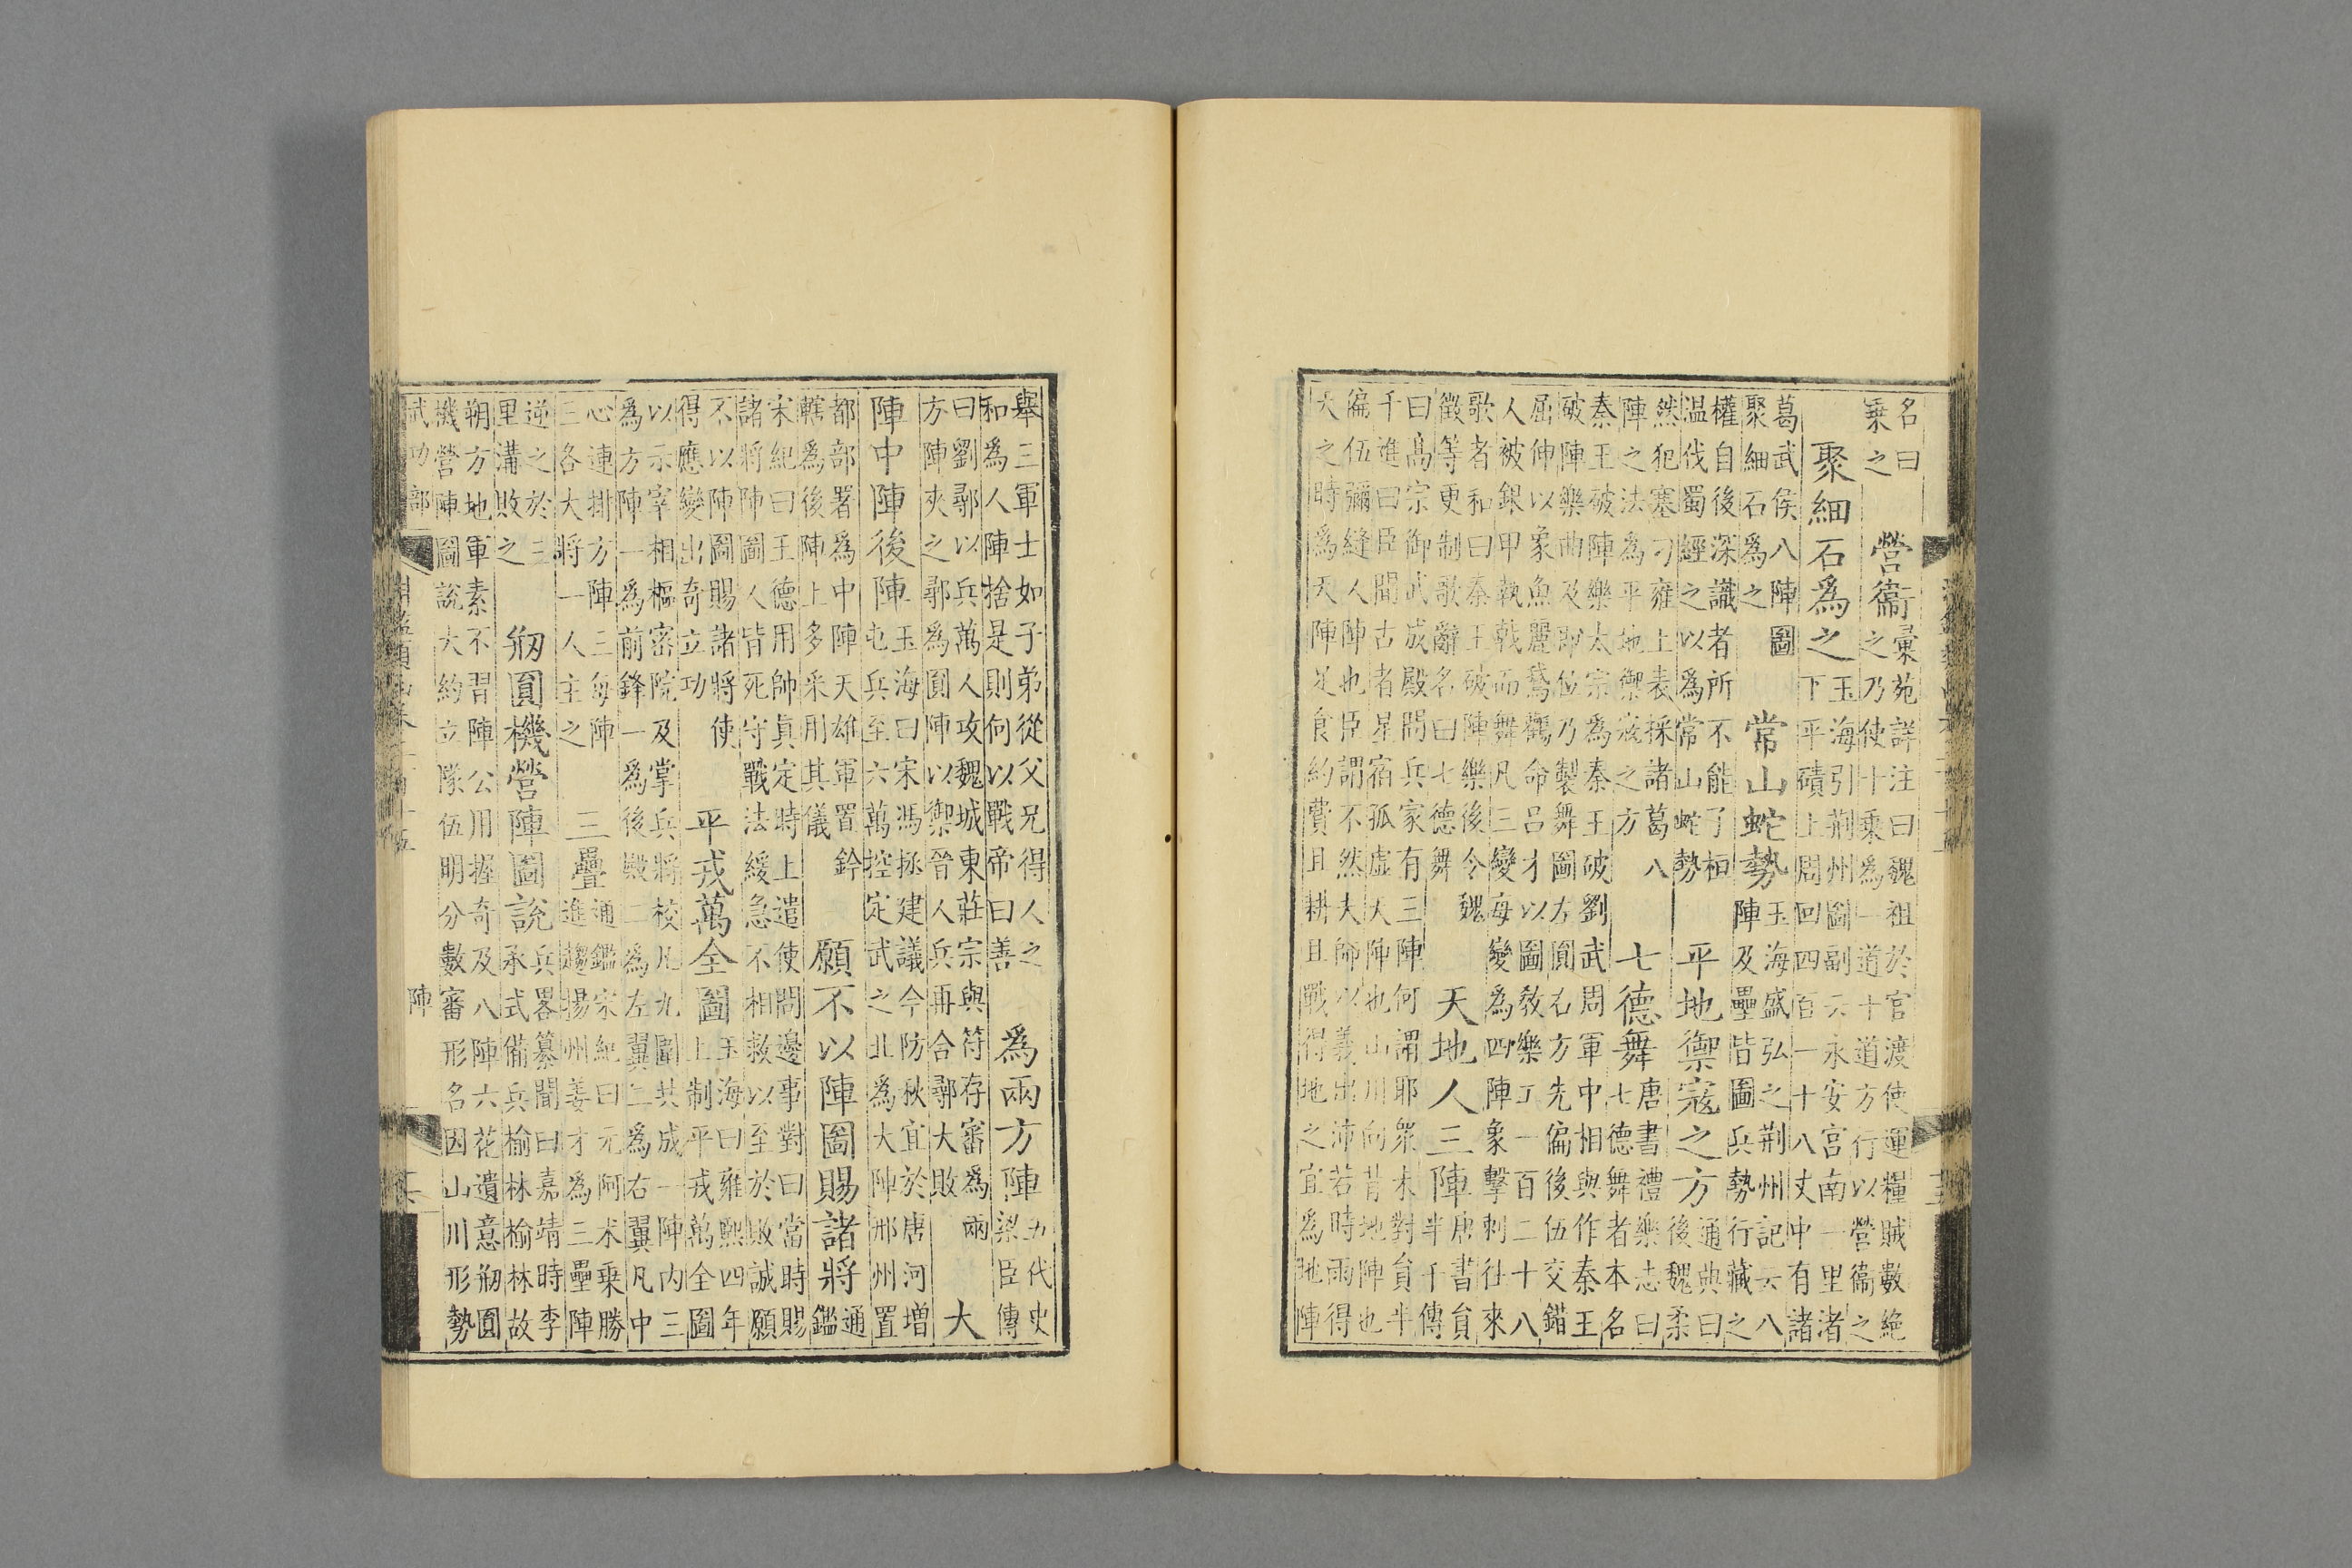 名曰乗之 營衞彙苑詳注曰魏祖於官渡使運糧賊數絶之乃使十乘為一道十道方行以營衞之
聚細石爲之玉海引荆州圖副云永安宫南一里渚下平磧上周回四百一十八丈中有諸
葛武侯八陣圖聚細石爲之 常山蛇勢玉海盛弘之荆州記云八陣及壘皆圖兵勢行藏之
權自後深識者所不能了桓温伐蜀經之以爲常山蛇勢 平地禦寇之方通典曰後魏柔
然犯塞刁雍上表採諸葛八陣之法為平地禦寇之方 七德舞唐書禮樂志曰七德舞者本名
秦王破陣樂太宗爲秦王破劉武周軍中相與作秦王破陣樂曲及即位乃製舞圖左圓右方先偏後伍交錯
屈伸以象魚麗鵝鸛命吕才以圖教樂工一百二十八人被銀甲執戟而舞凡三變每變為四陣象擊刺往來
歌者和曰秦王破陣樂後令魏徵等更制歌辭名曰七德舞 天地人三陣唐書員半千傳
曰高宗御武成殿問兵家有三陣何謂耶衆未對員半千進曰臣聞古者星宿孤虚天陣也山川向背地陣也
偏伍彌縫人陣也臣謂不然夫師以義出沛若時雨得天之時爲天陣足食約費且耕且戰得地之宜爲地陣
舉三軍士如子弟從父兄得人之和為人陣捨是則何以戰帝曰善 爲兩方陣五代史梁臣傳
曰劉鄩以兵萬人攻魏城東莊宗與符存審為兩方陣夾之鄩爲圓陣以禦晉人兵再合鄩大敗 大
陣中陣後陣玉海曰宋馮拯建議今防秋宜於唐河增屯兵至六萬控定武之北為大陣邢州置
都部署為中陣天雄軍置鈐轄爲後陣上多采用其儀 願不以陣圖賜諸將通鑑
宋紀曰王德用帥真定時上遣使問邊事對曰當時賜諸將陣圖人皆死守戰法緩急不相救以至於敗誠願
不以陣圖賜諸將使得應變出奇立功 平戎萬全圖玉海曰雍熙四年上制平戎萬全圖
以示宰相樞密院及掌兵將校凡九圍共成一陣内三為方陣一為前鋒一為後殿二為左翼二為右翼凡中
心連排方陣三每陣三各大將一人主之 三疊通鑑宋紀曰元阿术乗勝進趨揚州姜才為三疊陣
逆之於三里溝敗之 剏圓機營陣圖說兵畧纂聞曰嘉靖時李承式備兵榆林榆林故
朔方地軍素不習陣公用握奇及八陣六花遺意剏圓機營陣圖說大約立隊伍明分數審形名因山川形勢
武功部 陣